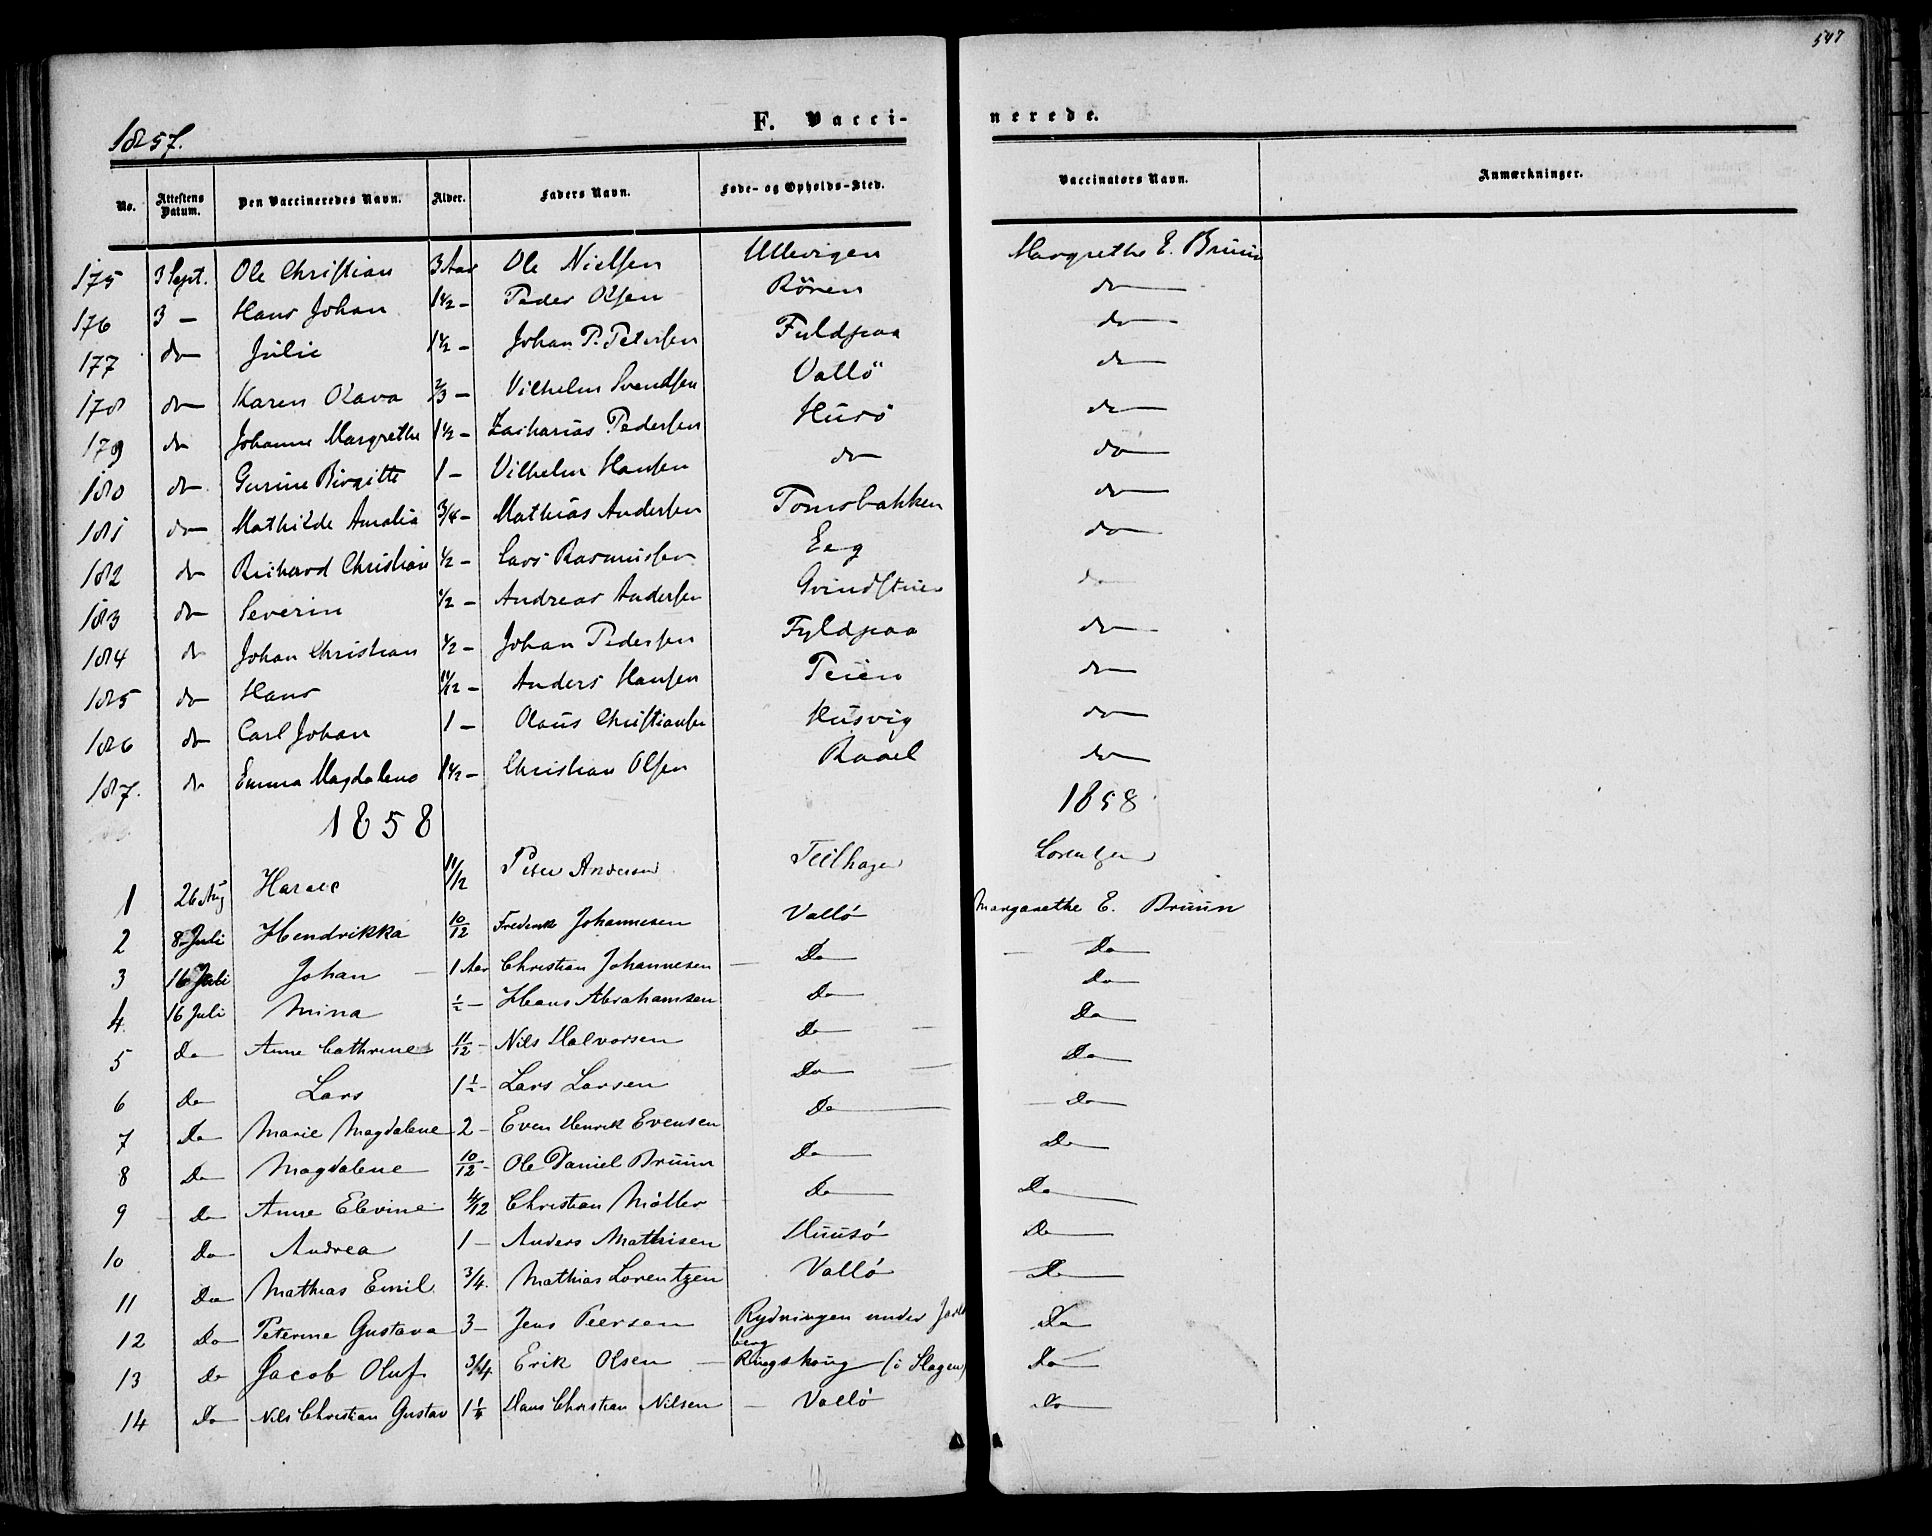 547
1857.
F. Vacci-
nerede.
No. Attestens Datum. Den Vaccineredes Navn. Alder. Faders Navn. Føde- og Opholds-Sted. Vaccinators Navn. Anmærkninger.
175 3 Sept. Ole Christian 3 Aar Ole Nielsen Ullevigen Margrethe E. Bruun
176 3 - Hans Johan 1 1/2 - Peder Olsen Rönen do
177 do Julie 1 1/2 - Johan P. Petersen Fuldpaa do
178 do Karen Olava 2/3 - Vilhelm Svendsen Vallö do
179 do Johanne Margrethe 1 1/2 - Zacharias Pedersen Husö do
180 do Gurine Birgitte 1 - Vilhelm Hansen do do
181 do Mathilde Amalia 3/4 - Mathias Andersen Tomsbakken do
182 do Richard Christian 1/2 - Lars Rasmussen Eeg do
183 do Severin 1/2 - Andreas Andersen Grindstuen do
184 do Johan Christian 1/2 - Johan Pedersen Fyldpaa do
185 do Hans 11/12 - Anders Hansen Teien do
186 do Carl Johan 1 - Olaus Christiansen Husvig do
187. do Emma Magdalena 1 1/2 - Christian Olsen Raael do
1858 1858
1 26 Aug 11/12 Peter Andersen Lorentzen
2 8 Juli Hendrikka 10/12 Frederik Johannesen Valló Margarethe E. Bruun
3 16 Juli Johan - 1 Aar Christian Johannesen - Do - Do
4. 16 Juli Mina 1/2 - Hans Abrahamsen Do Do
5 Do Anne Cathrine 11/12 - Nils Halvorsen Do - Do
6 Do Lars 1 1/2 - Lars Larsen Do - Do
7 Do Marie Magdalene 2 - Even Henrik Evensen Do - Do
8 Do Magdalene 10/12 - Ole Daniel Bruun Do Do
9 - Do Anne Elevine 4/12 Christian Móller Do Do
10 Do Andrea 1 - Anders Mathisen Huusó Do
11 Do Mathias Emil 3/4. Mathias Lorentzen Valló Do
12 Do Peterine Gustava 3 - Jens Peersen Rydningen under Jarls
berg Do
13 Do Jacob Oluf 3/4 Erik Olsen - Ringshoug (i Slagen) Do
14 Do Nils Christian Gustav 1 1/4 Hans Christian Nilsen - Valló Do